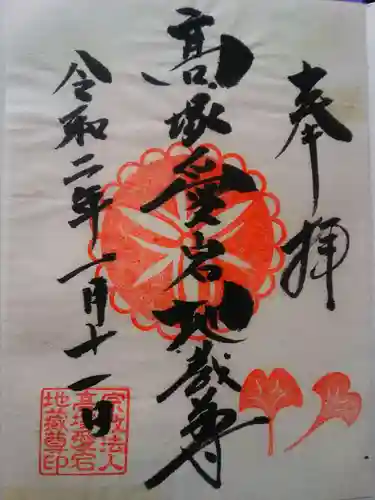 奉拝
高塚愛宕地蔵尊
令和二年一月十一日
宗教法人
高塚愛宕
地蔵尊印